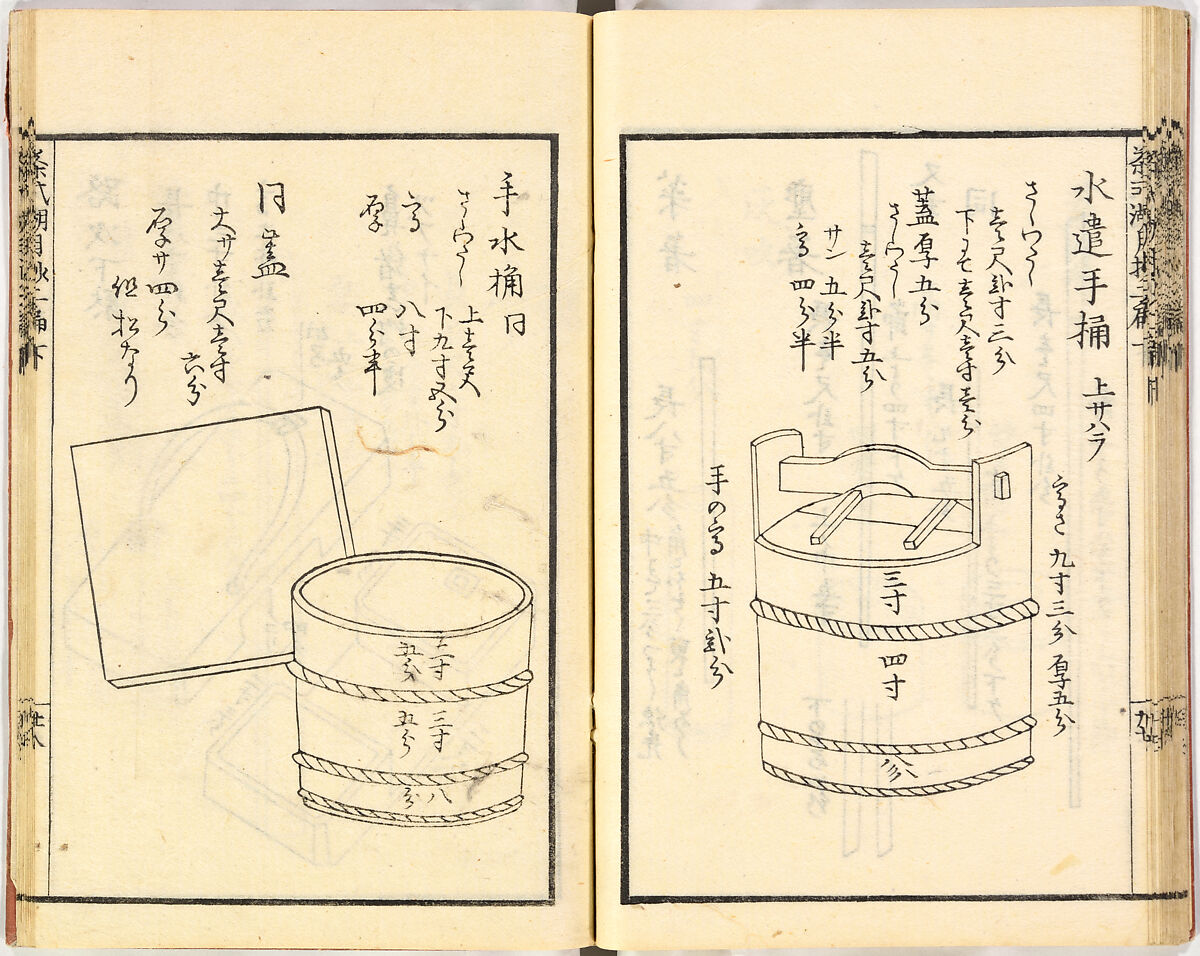 水遣手桶 上サハラ
さしわたし
壱尺弐寸三分
下ニて壱尺壱寸壱分
蓋厚五分
さしわたし
壱尺弐寸五分
サン 五分半
高四分半
高さ九寸三分 厚五分
手の高 五寸弐分
三寸
四寸
八分
手水桶 同
さしわたし 上壱尺
下九寸五分
高 八寸
厚 四分半
同蓋
大サ壱尺壱寸
六分
厚サ四分
但松なり
三寸
五分
三寸
五分
八分